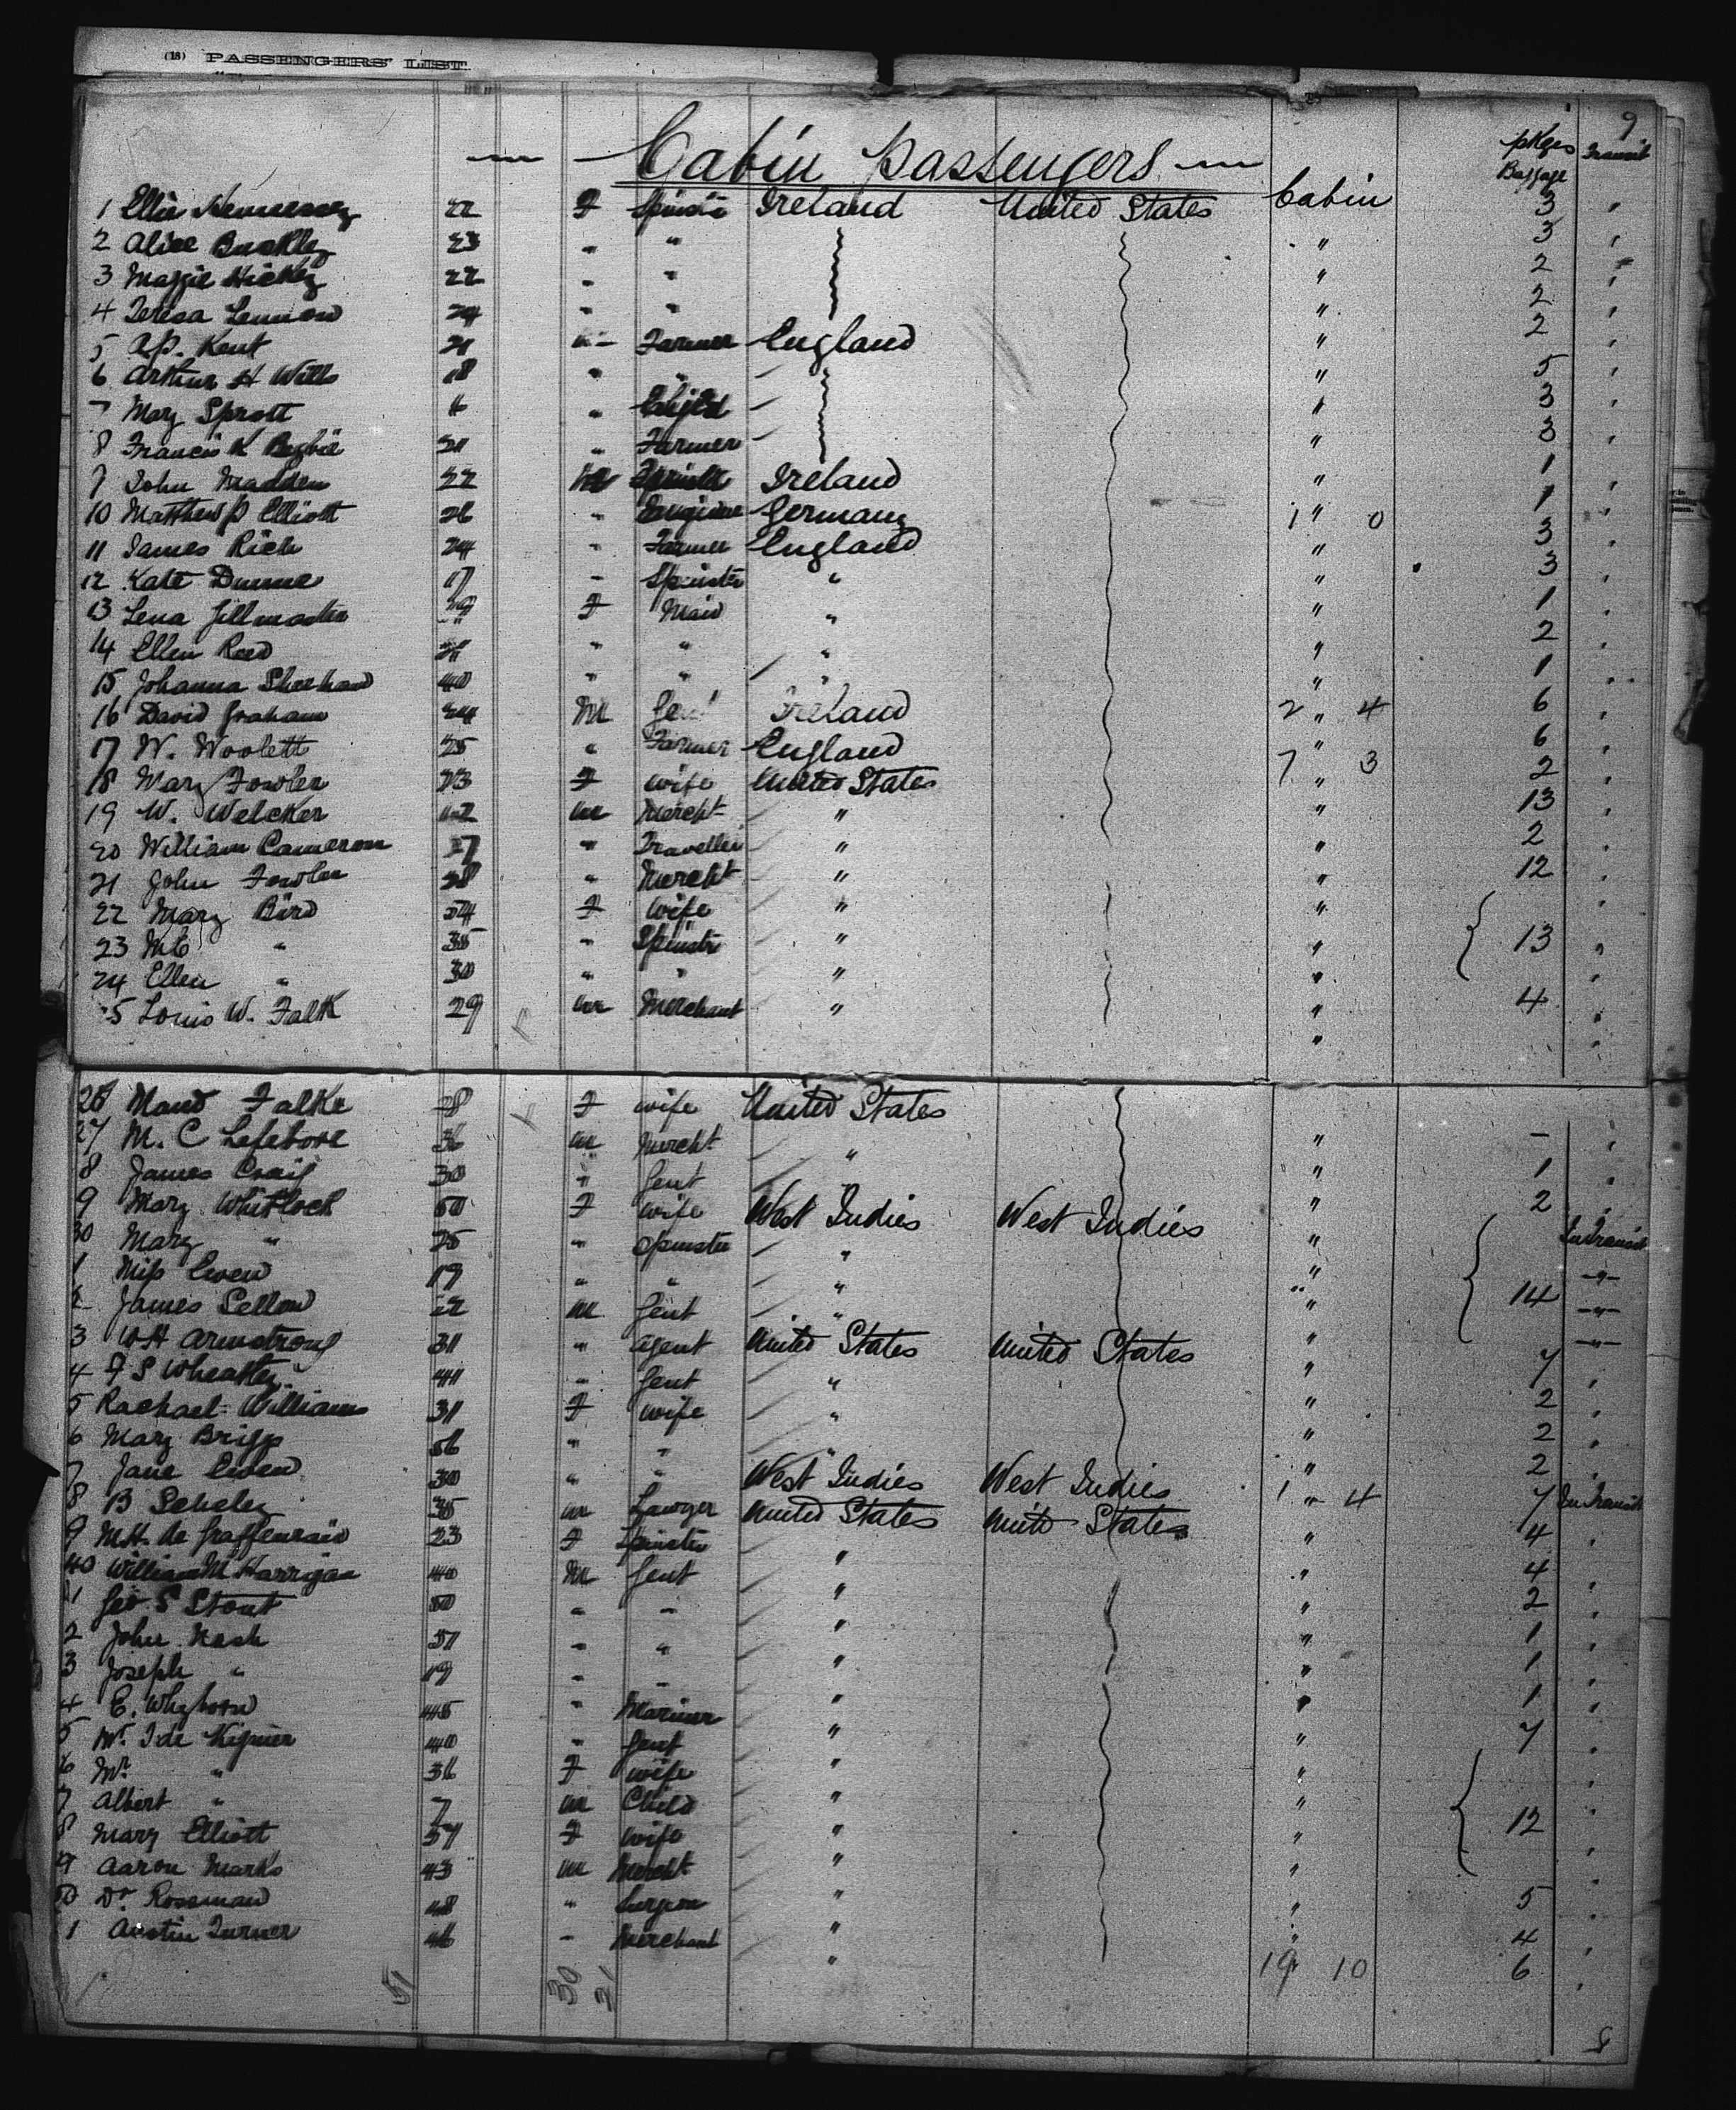 (18) PASSENGERS' LIST.
9
Cabin Passengers
pkges Baggage Transit
1 Ellie Hennessey 22 F Spinstr Ireland United States Cabin 3 "
2 Alice Buckley 23 " " " 3 "
3 Maggie Hickey 22 " " " 2 "
4 Teresa Lennon 24 " " " 2 "
5 A.P. Kent 21 m Farmer England " 2 "
6 Arthur H Wills 18 " " " 5 "
7 Mary Sprott 11 " Child " 3 "
8 Francis K 21 " Farmer " 3 "
9 John Madden 22 M Ireland " 1 "
10 Matthew P Elliott 26 " Germany 1 " 0 1 "
11 James Rich 24 " Farmer England " 3 "
12 Kate Dunne 17 " Spinster " " 3 "
13 Lena 29 F Maid " " 1 "
14 Ellen Reed 21 " " " " 2 "
15 Johanna Sheehan 40 " " " " 1 "
16 David Graham 24 M Gent Ireland 2 " 4 6 "
17 W. Woolett 25 " Farmer England " 6 "
18 Mary Fowler 23 F wife United States 7 " 3 2 "
19 W. Welcker 42 m Mercht " " 13 "
20 William Cameron 27 " Traveller " " 2 "
21 John Fowler 28 " Mercht " " 12 "
22 Mary Bird 54 F Wife " "
23 ME " 35 " Spinstr " " 13 "
24 Ellen " 30 " " " "
5 Louis W. Falk 29 m Merchant " " 4 "
26 Maud Falke 28 F wife United States
27 M. C Lefebore 36 m Mercht " " - "
8 James Craig 30 " Gent " 1 "
9 Mary Whitlock 50 F Wife West Indies West Indies " 2 "
30 Mary " 25 " Spinster " " In Transit
1 Miss Ewen 19 " " " " - " -
2 James Sellow 22 m Gent " " 14 - " -
3 WH Armstrong 31 " Agent United States United States " - " -
4 F S Wheatley 41 " Gent " " 7 "
5 Rachael Williams 31 F wife " " 2 "
6 Mary Briggs 56 " " " " 2 "
7 Jane Ewen 30 " " West Indies West Indies " 2 "
8 B Seheley 35 m Lawyer United States Unitd States 1 " 4 7 In Transit
9 M.H. de Graffenraid 23 F Spinster " " 4 "
40 William M Harrigan 40 M Gent " " 4 "
41 Geo. S Stout 50 " " " " 2 "
2 John Nash 51 " " " " 1 "
3 Joseph " 19 " " " " 1 "
4 E. Whyborn 45 " Mariner " " 1 "
5 Mr. I de 40 " Gent " " 7 "
6 Mrs " 36 F wife " "
7 Albert " 7 m Child " "
8 Mary Elliott 57 F wife " " 12 "
9 Aaron Marks 43 m Mercht " "
50 Dr Rossman 48 " Surgeon " " 5 "
1 Austin Turner 46 - Merchant " " 4 "
51 30 21 " 19 10 6 "